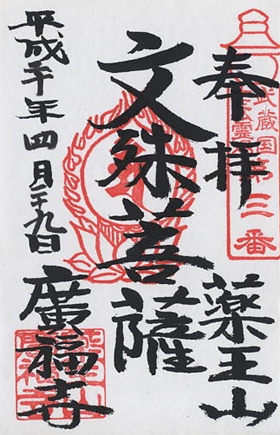 奉拝
武蔵国
第三番
薬王山
文殊菩薩
廣福寺
平成二十年四月二十九日